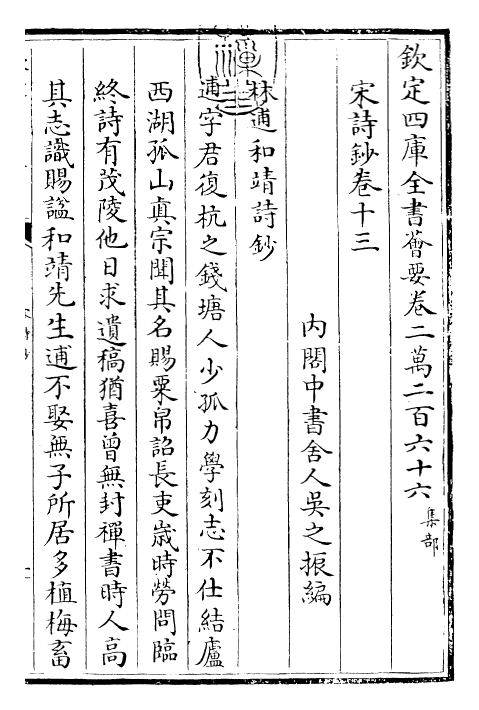 欽定四庫全書薈要卷二萬二百六十六
集部
宋詩鈔卷十三
內閣中書舍人吳之振編
林逋和靖詩鈔
逋字君復杭之錢塘人少孤力學刻志不仕結廬
西湖孤山真宗聞其名賜粟帛詔長吏歲時勞問臨
終詩有茂陵他日求遺稿猶喜曾無封禪書時人高
其志識賜諡和靖先生逋不娶無子所居多植梅畜